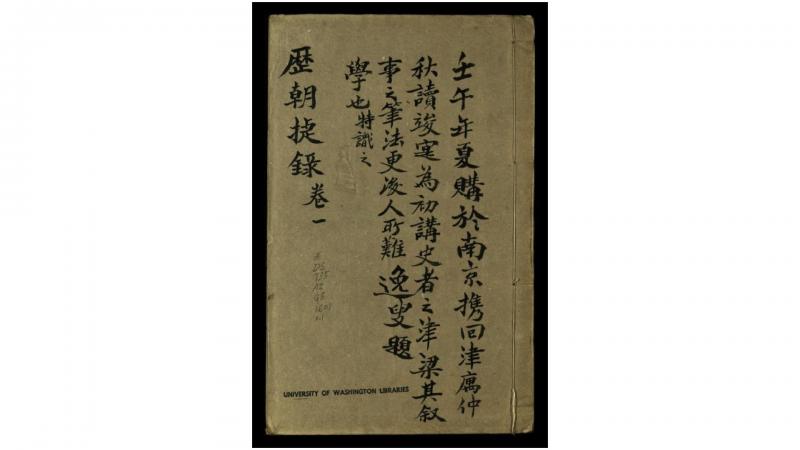 壬午年夏購於南京携回津寓仲
秋讀竣寔為初講史者之津梁其叙
事之筆法更後人所難
學也特識之
逸叟題
歷朝捷錄
卷一
UNIVERSITY OF WASHINGTON LIBRARIES